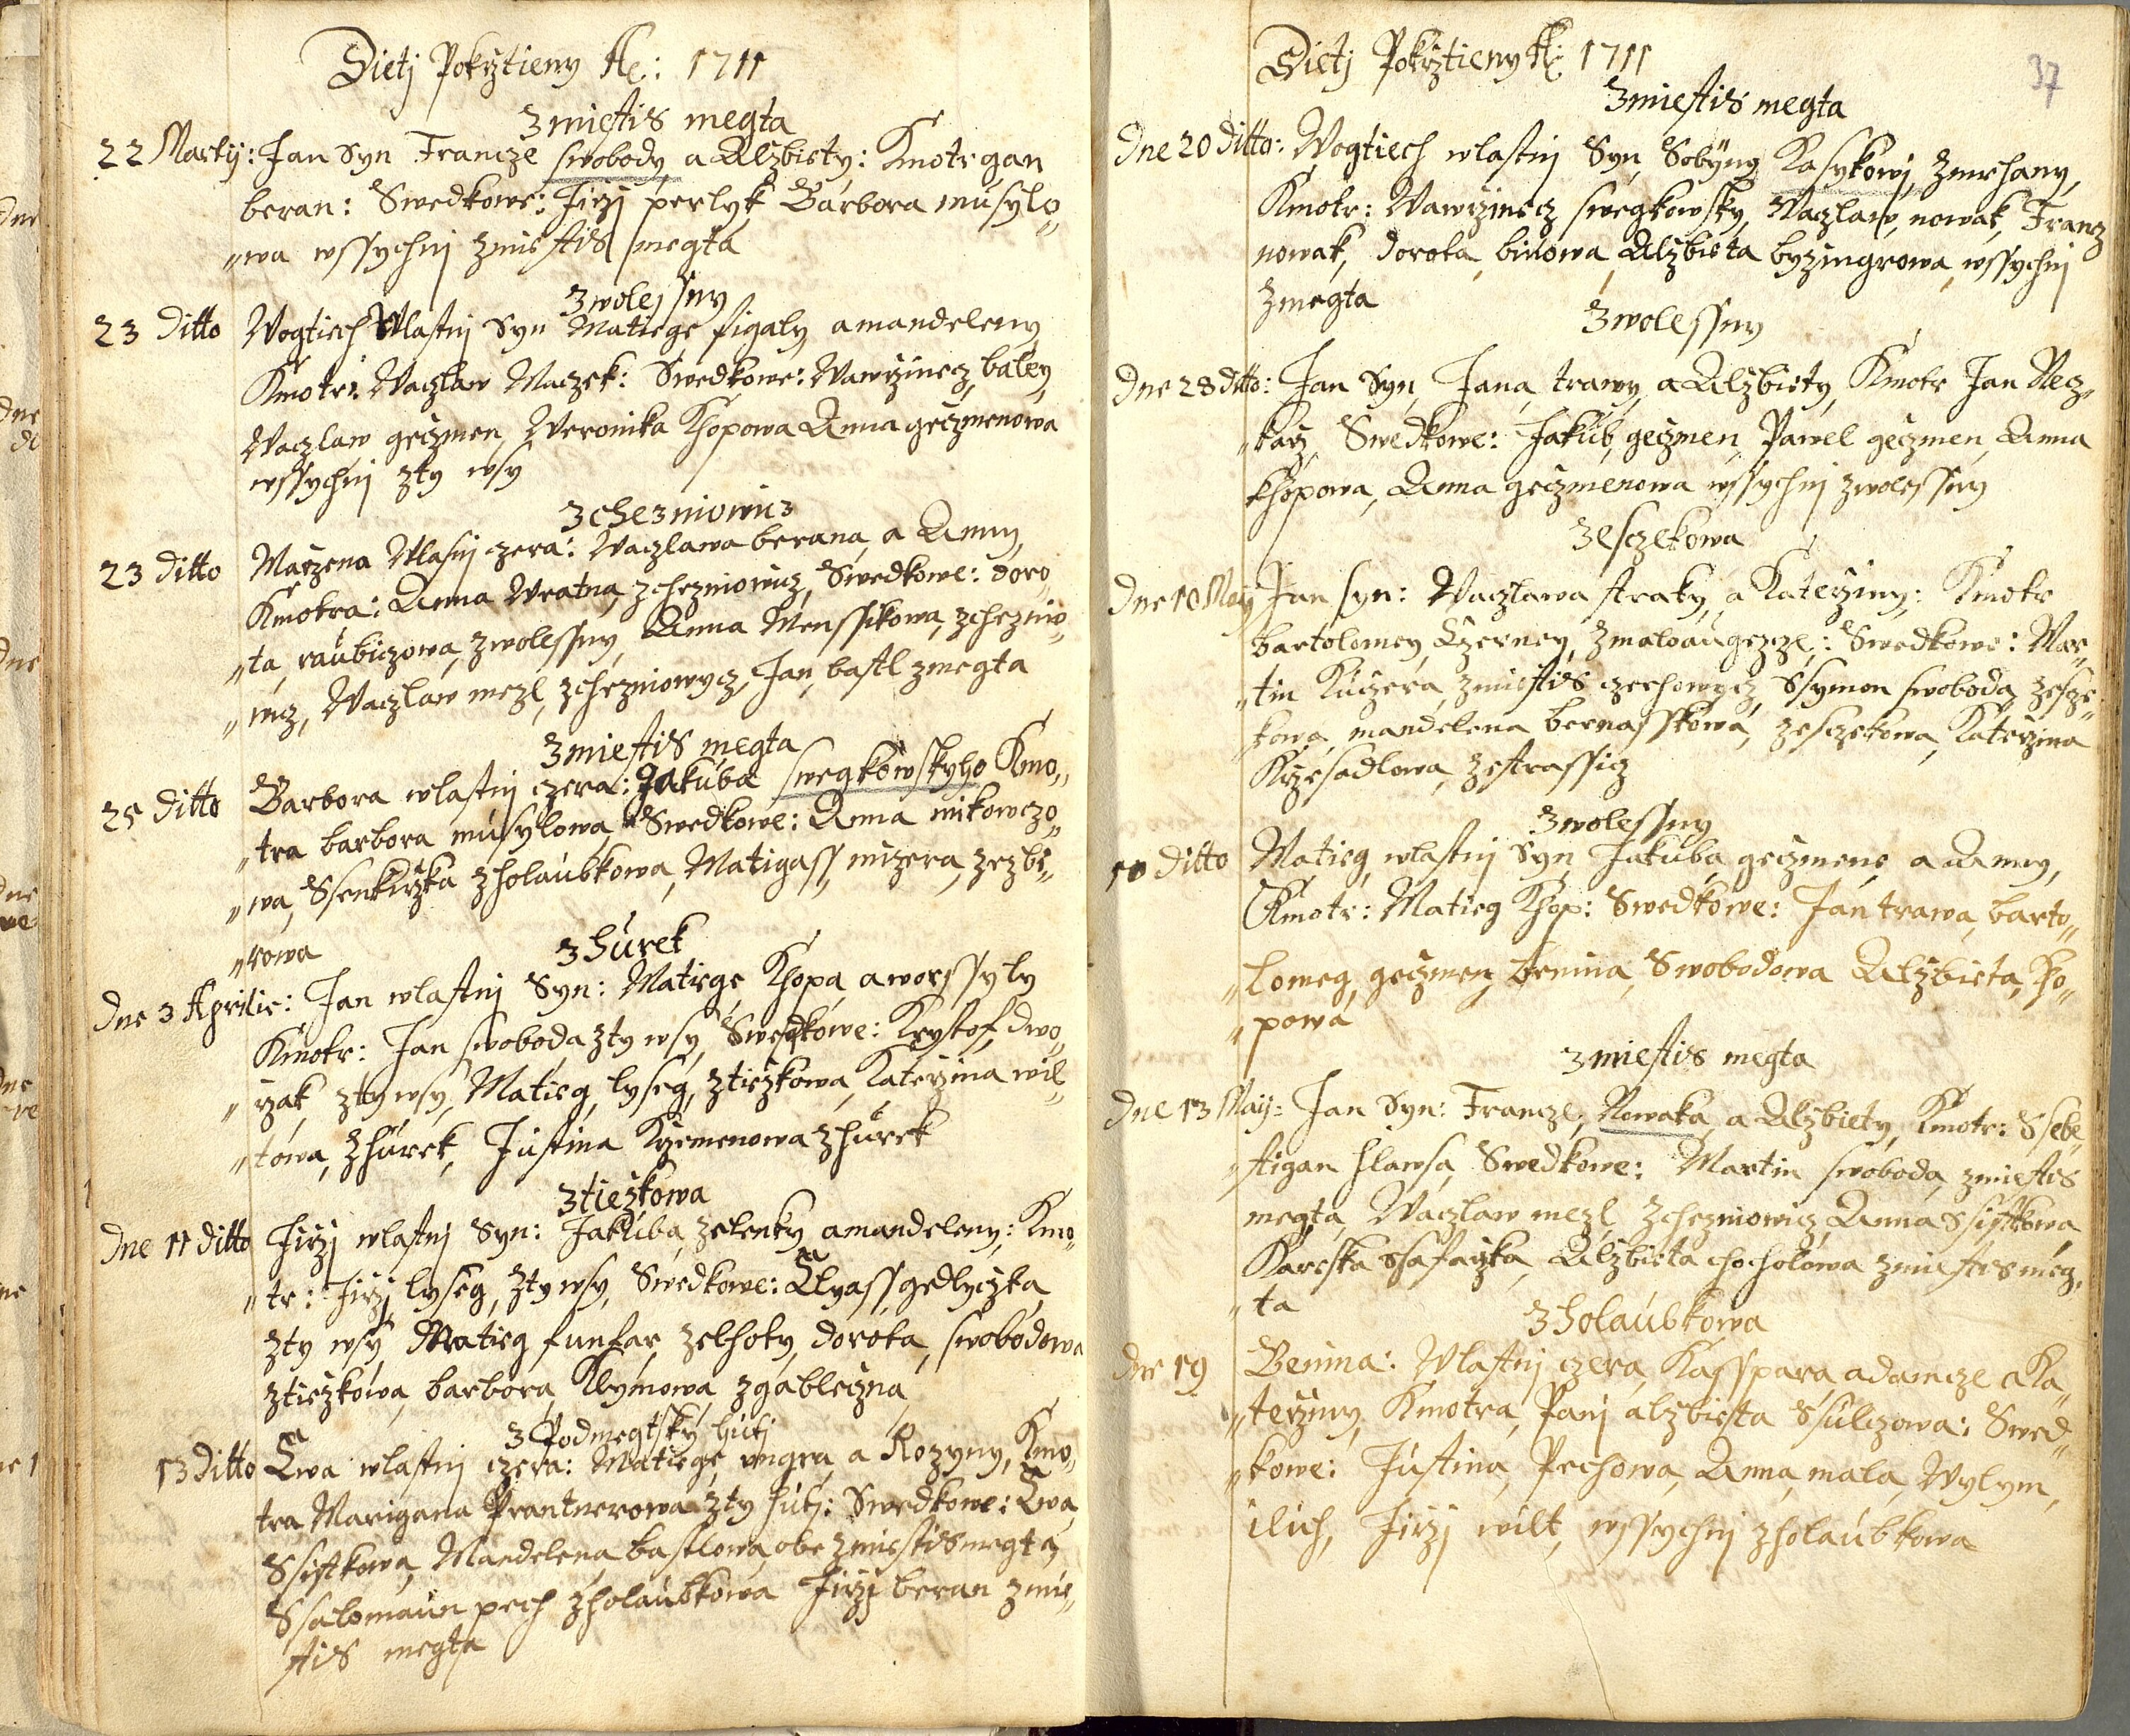 Dietj Pokrztieny Ae: 1711
Zmiestis megta
22 Martij: Jan Syn Francze swobody a Alzbiety: Kmotr gan
beran: Swedkowe: Jirzj perlyk Barbora musylo„
„wa wssychnj zmiestis megta
Zwolessny
23 Ditto Wogtiech Wlastnj Syn Matiege figaly amandeleny
Kmotr: Waczlaw Maczek: Swedkowe: Wawrzinecz baley
Waczlaw geczmen, Weronika Khopowa Anna geczmenowa
wssychnj zty wsy
Zchezniowicz
23 Ditto Marzena Wlasnj czera: Waczlawa berana a Anny,
Kmotra: Anna Wratna zchezniowicz, Swedkowe: doro„
„ta, raubiczowa, zwolessny, Anna Menssikowa, zchezniw„
„icz, Waczlaw mezl, zchezniowycz, Jan bastl zmegta
Zmiestis megta
25 Ditto Barbora wlastnj czera: Jakuba swegkowskyho Kmo„
„tra barbora musylowa Swedkowe: Anna mikowczo„
„wa, Ssenkirzka zholaubkowa, Matigass mizera zezbi„
„rowa
Zhurek
Dne 3 Aprilis: Jan wlastnj Syn: Matiege Khopa aworssyly
Kmotr: Jan swoboda zty wsy, Swedkowe: Krystof dwo„
„rzak zty wsy, Matieg lyseg, ztiezkowa, Katerzina wil„
„towa, Zhurek, Justina Krzemenowa Zhurek
Ztiezkowa
Dne 11 ditto Jirzj wlastnj Syn: Jakuba zelenky amandeleny: Kmo„
„tr: Jirzj lyseg, Zty wsy, Swedkowe: Elyass gedlyczka
Zty wsy Matieg funfar zelhoty, dorota swobodowa
ztiezkowa, barbora Klymowa zgableczna
Z Podmegtsky hutj
13 ditto Ewa wlastnj czera: Matiege ungra a Rozyny, Kmo„
tra Marigana Prantnerowa zty hutj: Swedkowe: Ewa
Ssistkowa, Mandelena bastlowa, obe zmiestis megta,
Ssalomaun pech Zholaubkowa Jirzj beran zmie„
stis megta
Dietj Pokrztieny A: 1711
37
Zmiestis megta
Dne 20 ditto: Wogtiech wlastnj Syn, Sobyny Kasykowj, Zmrhany,
Kmotr: Wawrzinecz swegkowsky, Waczlaw nowak, Francz
nowak, dorota binowa, Alzbieta byzingrowa, wssychnj
Zmegta
Zwolessny
Dne 28 ditto: Jan Syn, Jana trawy, a Alzbiety, Kmotr Jan Recz„
„karz, Swedkowe: Jakub geczmen, Pawel geczmen, Anna
Khopowa, Anna geczmenowa wssychnj zwolessny
Zesczekowa
Dne 10 Maij Jan syn: Waczlawa straky a Katerziny: Kmotr
bartolomey Czerney, Zmaloaugezcze: Swedkowe: Mar„
„tin Kuczera, zmiestis czechowycz, Ssymon swoboda zescze„
kowa, mandelena bernasskowa, zesczekowa, Katerzina
Krzesadlowa, Zestrassicz
Zwolessny
10 ditto Matieg, wlastnj Syn Jakuba, geczmene a Anny,
Kmotr: Matieg Khop: Swedkowe: Jan trawa, barto„
„lomeg, geczmen, benina, Swobodowa Alzbieta, Kho„
„powa
Zmiestis megta
Dne 13 Maij: Jan Syn: Francze, Nowaka, a Alzbiety, Kmotr: Ssebe„
stigan hlawsa, Swedkowe: Martin swoboda, zmiestis
megta, Waczlaw mezl, Zchezniowicz, Anna Ssistkowa,
Kareska Ssafarzka, Alzbieta chocholowa zmiestis meg„
„ta
Zholaubkowa
Dne 19 Benina: Wlastnj czera, Kasspara adamcze a Ka„
„terziny, Kmotra, Panj alzbieta Ssulczowa: Swed„
„kowe: Justina, Pechowa, Anna mala, Wylym,
ilich, Jirzj wilt, wssychnj zholaubkowa